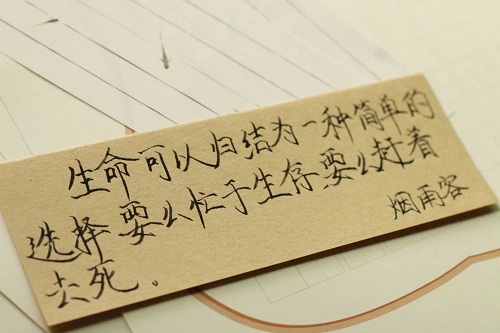 生命可以归结为一种简单的
选择要么忙于生存要么赶着
去死。
烟雨容